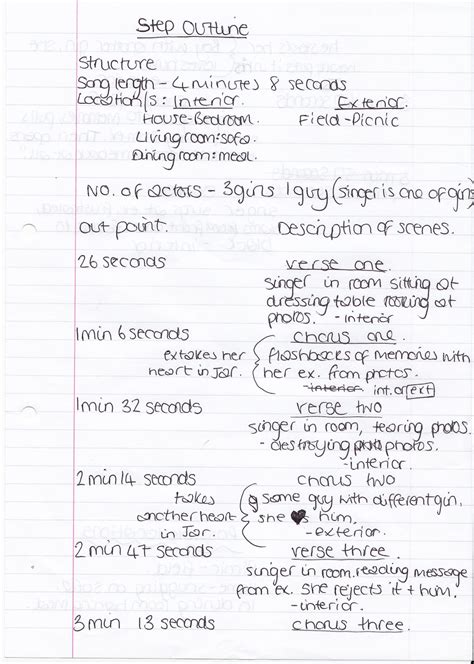 Step Outline
Structure
Song length - 4 minutes 8 seconds
Location/s: Interior. Exterior.
House-Bedroom. Field-Picnic
Living room: sofa.
Dining room: meal.
No. of actors - 3 girls 1 guy (singer is one of girls)
Out point. Description of scenes.
26 seconds verse one.
singer in room sitting at
dressing table looking at
photos. - interior
1 min 6 seconds chorus one.
ex takes her flashbacks of memories with
heart in Jar. her ex. from photos.
- interior int. or ext
1 min 32 seconds verse two
singer in room, tearing photos.
- destroying photos.
- interior.
2 min 14 seconds chorus two
takes some guy with different girl.
another heart she ♥s him.
in Jar - exterior.
2 min 47 seconds verse three.
singer in room. reading message
from ex. She rejects it + him.
- interior.
3 min 13 seconds chorus three.